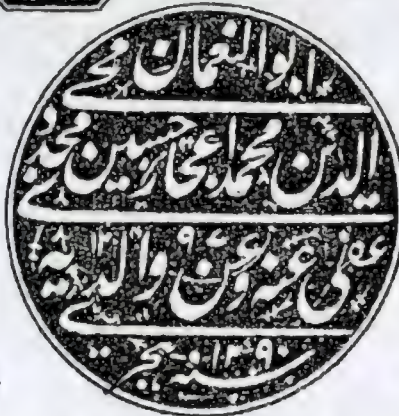 ابوالنعمان محی
الدین محمد اعجاز حسین مجددی
عفی عنہ وعن والدیہ
سنہ ۱۳۹۰ ہجری